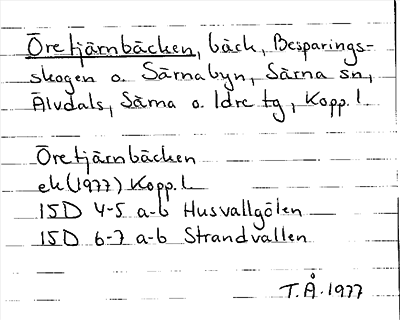 Öretjärnbäcken, bäck, Besparings-
skogen o. Särnabyn, Särna sn,
Älvdals, Särna o. Idre tg, Kopp. l.
Öretjärnbäcken
ek (1977) Kopp. l.
15D 4-5 a-b Husvallgölen
15D 6-7 a-b Strandvallen
T.Å. 1977